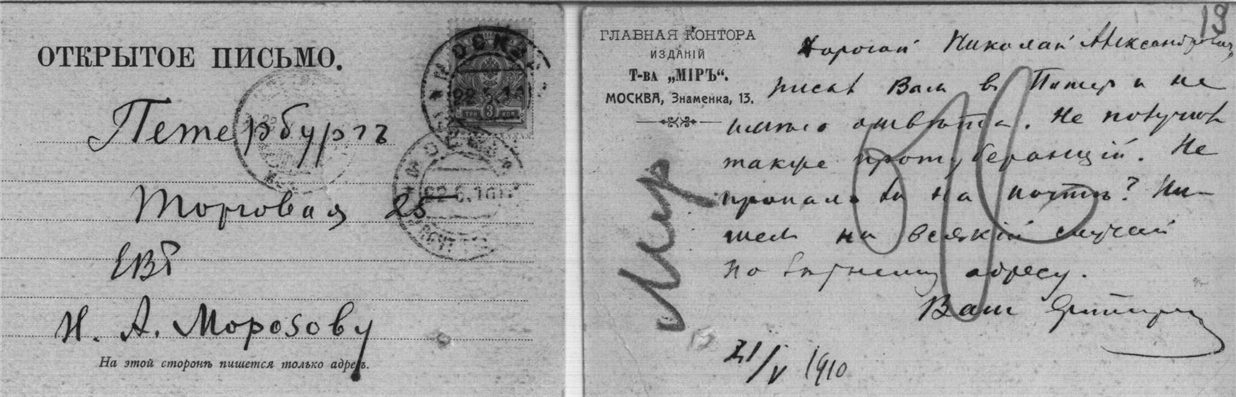 ОТКРЫТОЕ ПИСЬМО.
Петербургъ
Торговая 25
ЕВБ
Н. А. Морозову
На этой сторонѣ пишется только адресъ.
МОСКВА
22.5.10
19
ГЛАВНАЯ КОНТОРА
ИЗДАНІЙ
Т-ва „МІРЪ“.
МОСКВА, Знаменка, 13.
Мир
Дорогой Николай Александрович,
писалъ Вам в Питер и не
имѣю отвѣта. Не получил
также протуберанцій. Не
пропало ли на почтѣ? Пи-
шем на всякій случай
по адресу.
Ваш
21/V 1910